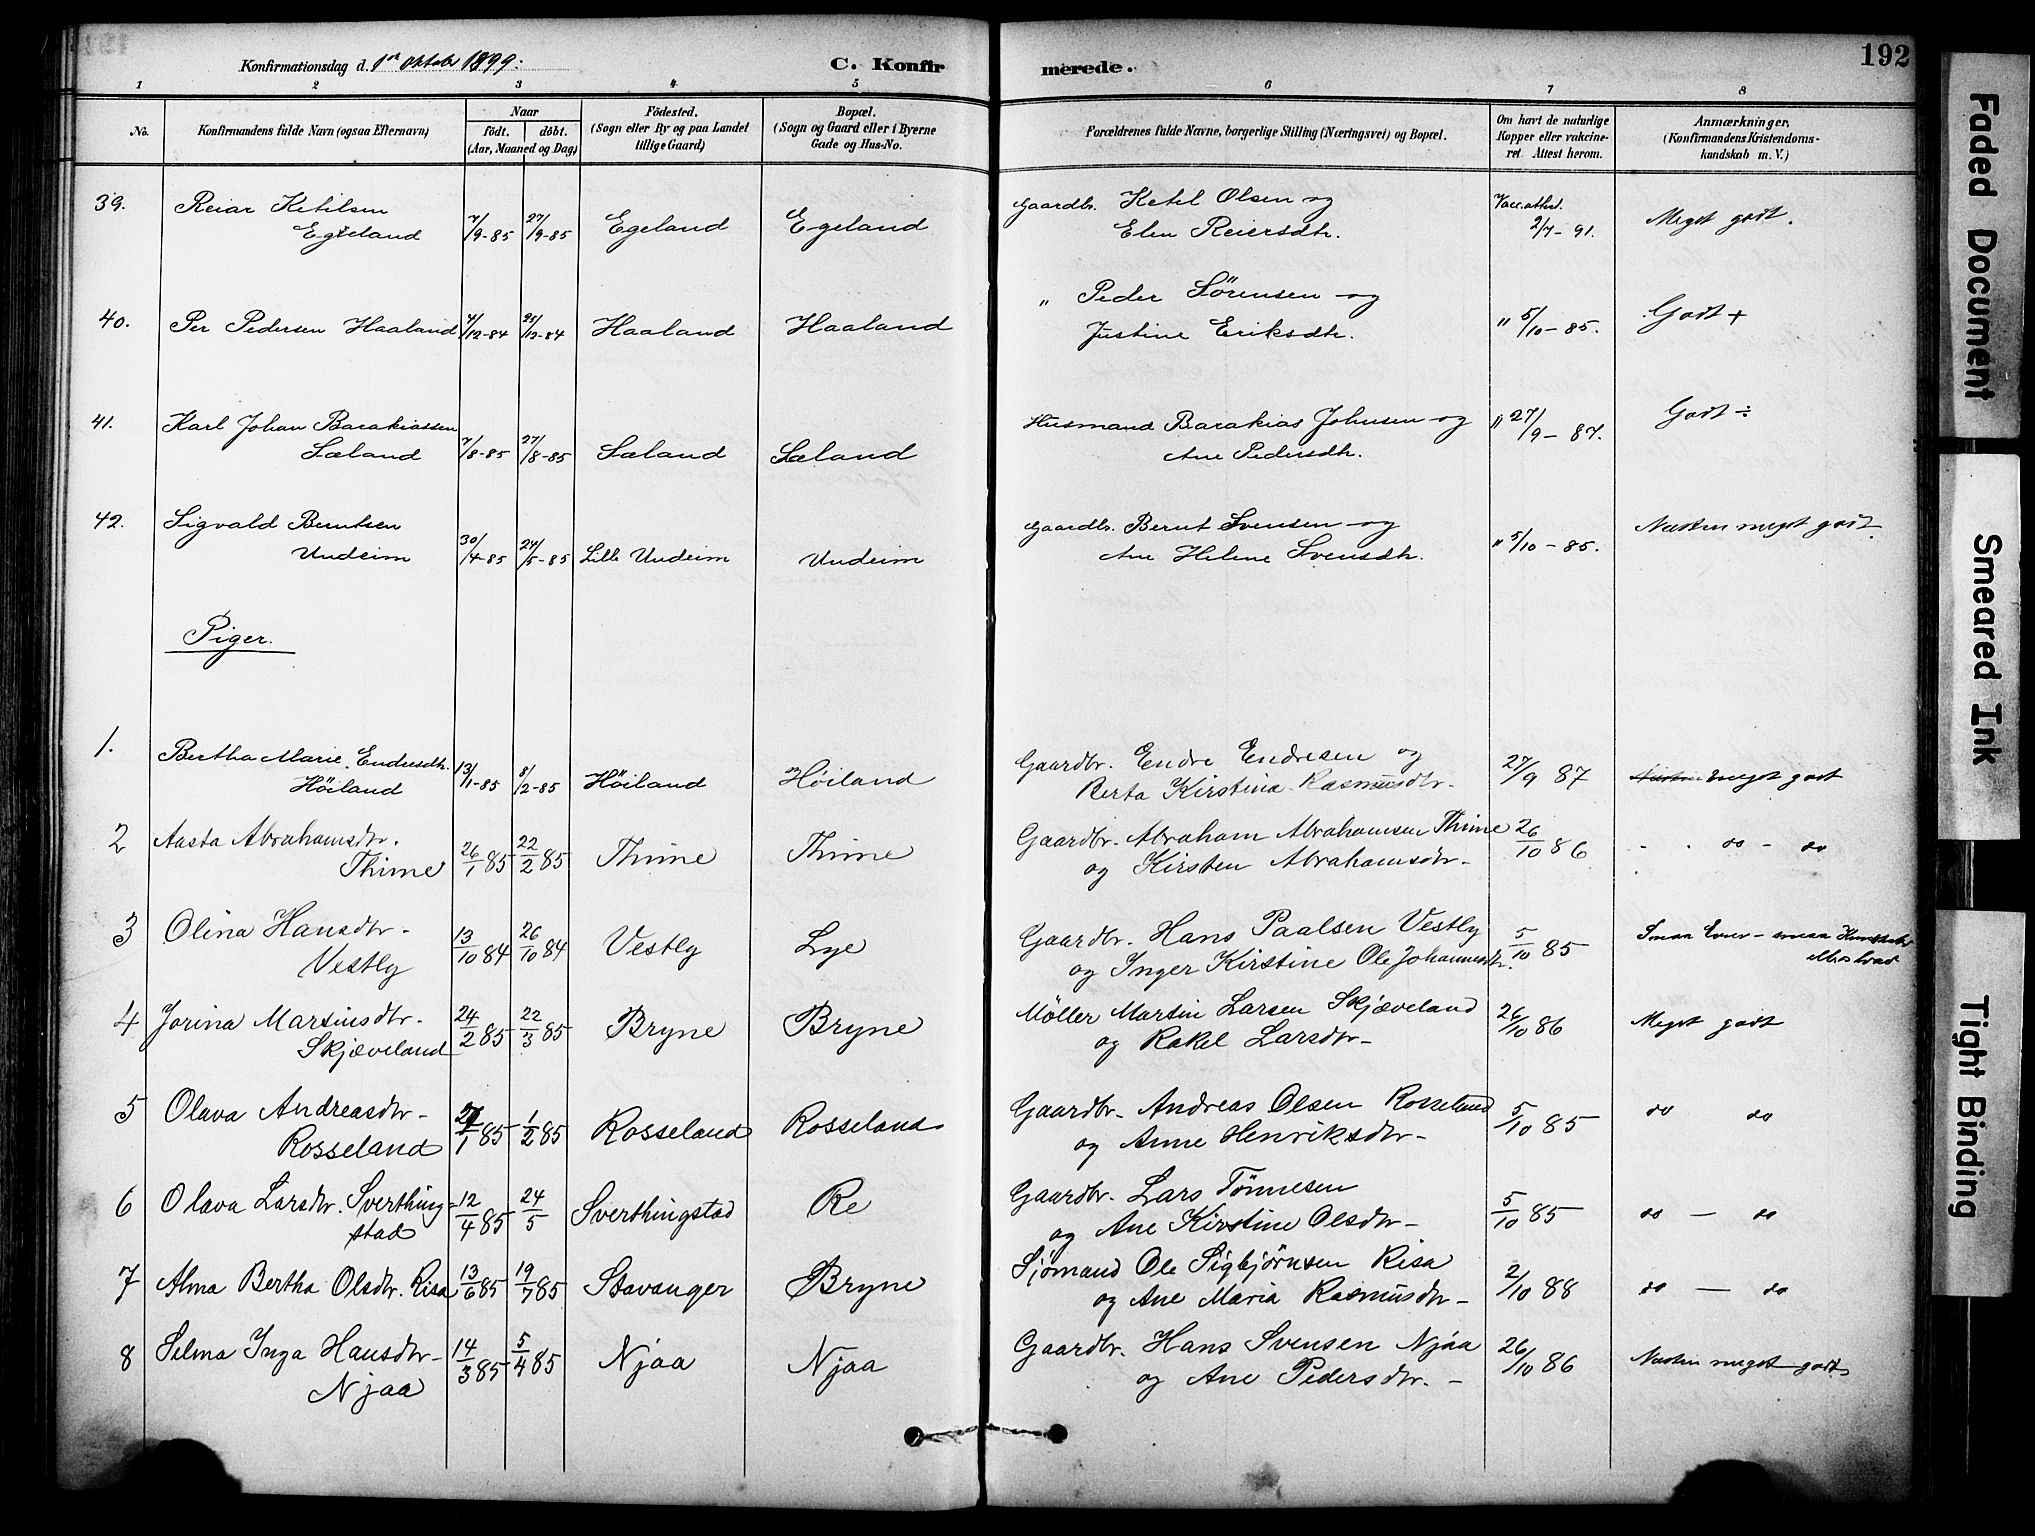 192
Konfirmationsdag d. 1ste Oktober 1899.
C. Konfirmerede.
1 2 3 4 5 6 7 8
No.
Konfirmandens fulde Navn (ogsaa Efternavn)
Naar
født. døbt.
(Aar, Maaned og Dag)
Födested.
(Sogn eller By og paa Landet
tillige Gaard)
Bopæl.
(Sogn og Gaard eller i Byerne
Gade og Hus-No.
Forældrenes fulde Navne, borgerlige Stilling (Næringsvei) og Bopæl.
Om havt de naturlige
Kopper eller vakcine-
ret. Attest herom.
Anmærkninger,
(Konfirmandens Kristendoms-
kundskab m. V.)
39. Reiar Ketilsen Gaardbr. Ketil Olsen og Vacc. atht.
Egeland 7/9-85 27/9-85 Egeland Egeland Elen Reiersdtr. 2/7-91. Meget godt.
" Peder Sörensen og
40. Per Pedersen Haaland 7/12-84 25/12-84 Haaland Haaland Justine Eriksdtr. " 5/10-85. Godt +
41. Karl Johan Barakiassen Husmand Barakias Johnsen og " 27/9-87. Godt ÷
Sæland 7/8-85 27/8-85 Sæland Sæland Ane Pedersdtr.
42. Sigvald Berntsen Gaardbr. Bernt Svensen og Næsten meget godt.
Undeim 30/4-85 24/5-85 Lille Undeim Undeim Ane Helene Svensdtr. " 5/10-85.
Piger.
1. Bertha Marie Endresdtr. Gaardbr. Endre Endresen og
Höiland 13/1-85 8/2-85 Höiland Höiland Berta Kirstina Rasmusdtr. 27/9 87 Næsten meget godt
2 Aasta Abrahamsdtr. Gaardbr. Abraham Abrahamsen Thime
Thime 26/1 85 22/2 85 Thime Thime og Kirsten Abrahamsdtr. 26/10 86 do - do
3 Olina Hansdtr. Gaardbr. Hans Paalsen Vestly Smaa Evner - smaa
Vestly 13/10 84 26/10 84 Vestly Lye og Inger Kirstine Ole Johannesdtr. 5/10 85
4 Jorina Martinsdtr. Møller Martin Larsen Skjæveland
Skjæveland 24/2 85 22/3 85 Bryne Bryne og Rakel Larsdtr. 26/10 86 Meget godt
5 Olava Andreasdtr. Gaardbr. Andreas Olsen Rosseland
Rosseland 85 1/2 85 Rosseland Rosseland og Anne Henriksdtr. 5/10 85 do do
6 Olava Larsdtr. Sverthing- Gaardbr. Lars Tönnesen
stad 12/4 85 24/5 Sverthingstad Re og Ane Kirstine Olsdtr. 5/10 85 do - do
7 Alma Bertha Olsdtr. Risa Sjømand Ole Sigbjørnsen Risa
13/6 85 19/7 85 Stavanger Bryne og Ane Maria Rasmusdtr. 2/10 88 do - do
8 Selma Inga Hansdtr. Gaardbr. Hans Svensen Njaa
Njaa 14/3 85 5/4 85 Njaa Njaa og Ane Pedersdtr. 26/10 86 Næsten meget godt
Faded Document
Smeared Ink
Tight Binding